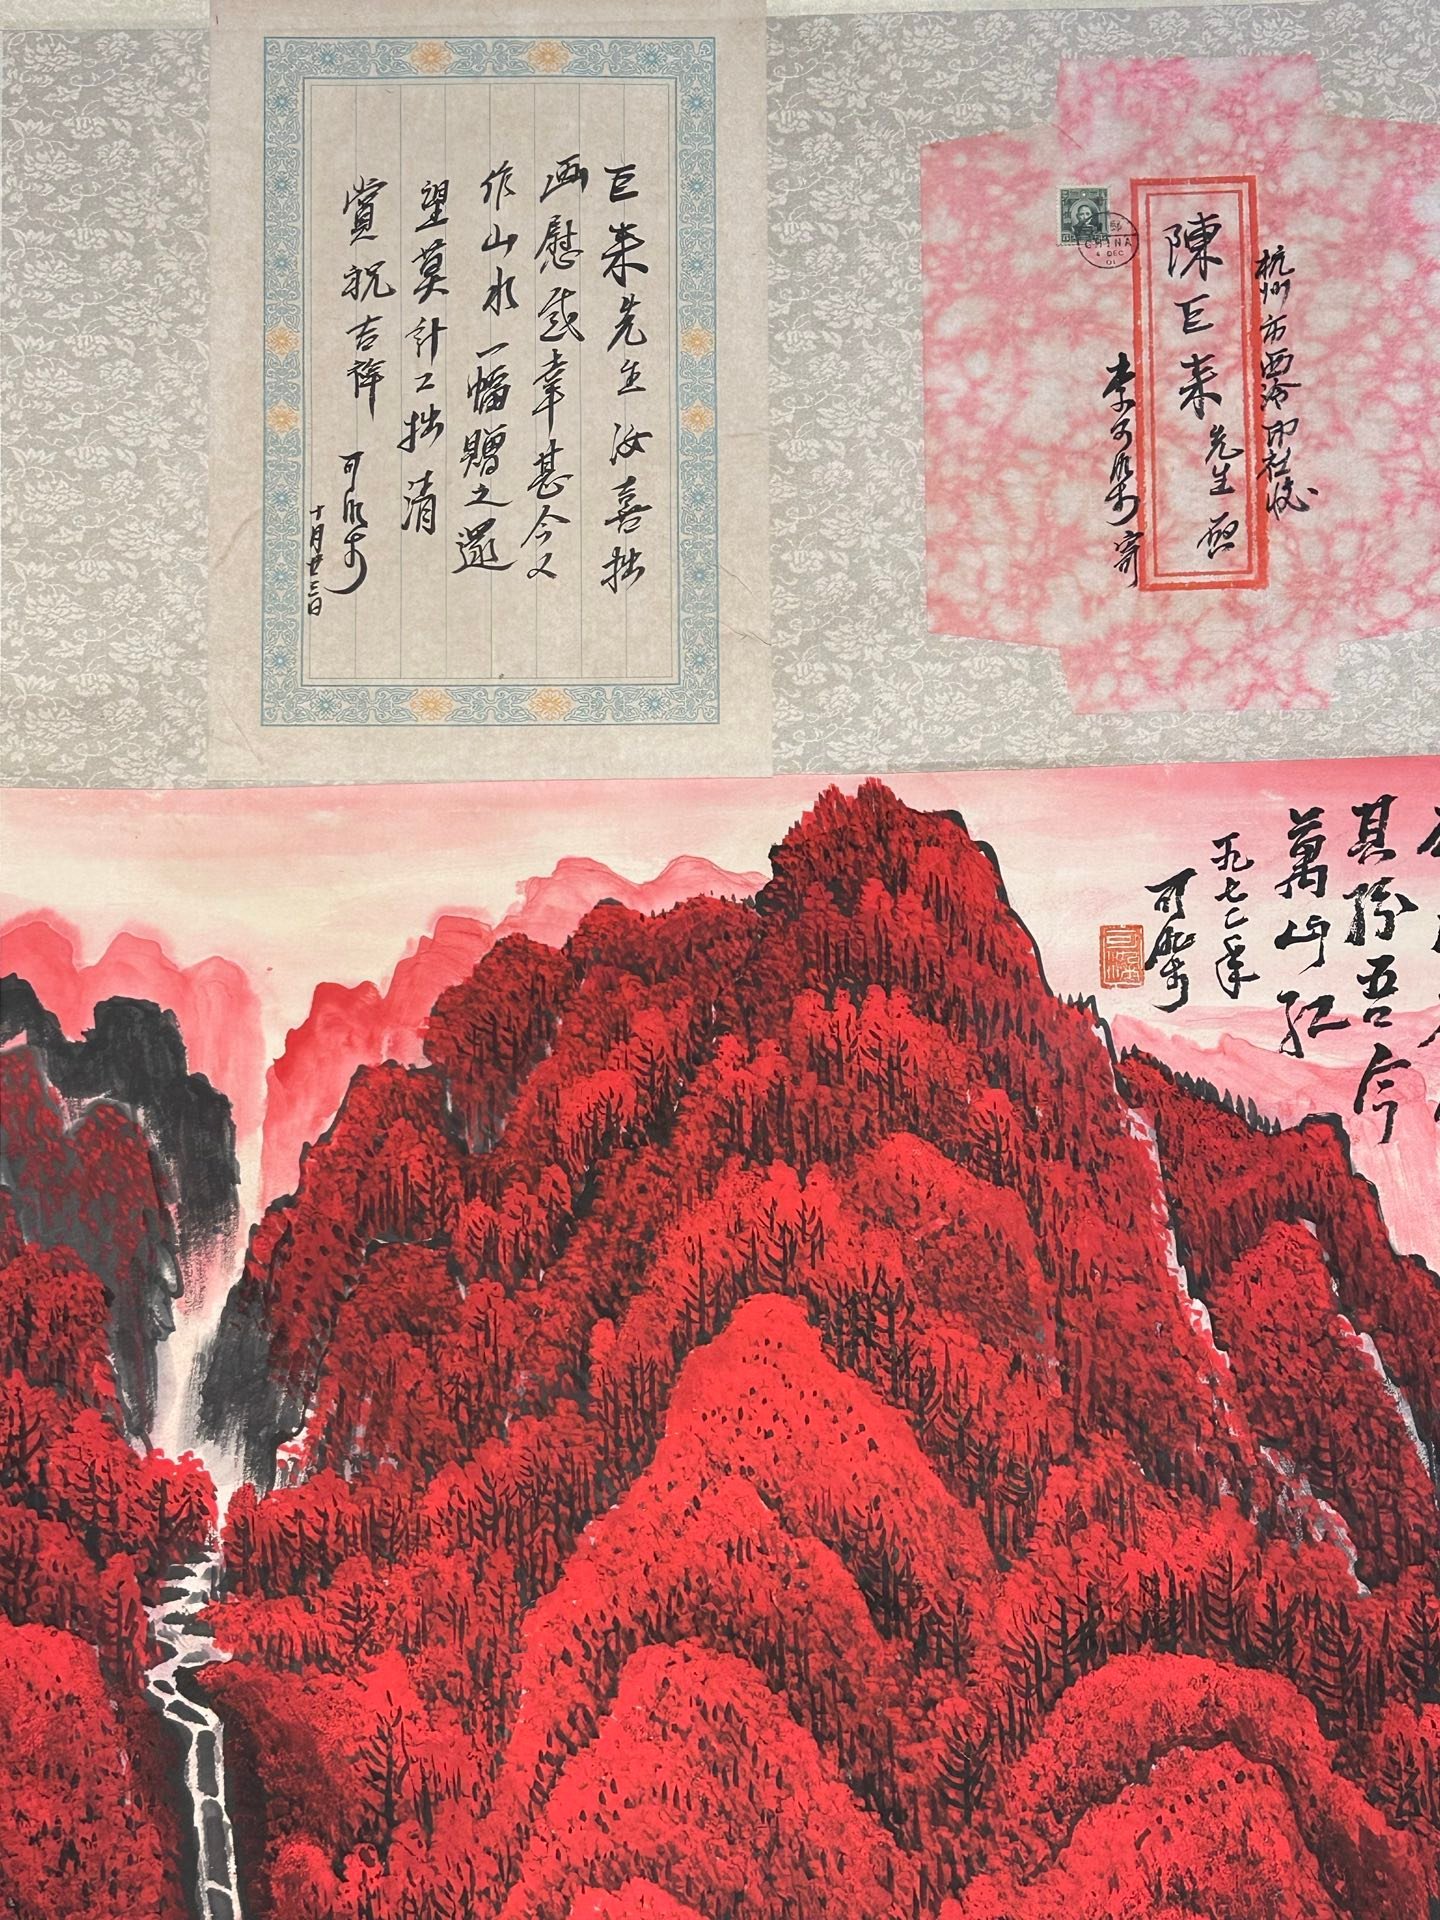 巨来先生汝喜拙
画慰感幸甚今又
作山水一幅贈之還
望莫計工拙清
賞祝吉祥
可染
十月廿三日
杭州市西泠印社收
陳巨来先生啓
李可染寄
CHINA
4 DEC
01
其秾吾今
萬山紅
一九七二年
可染
可染